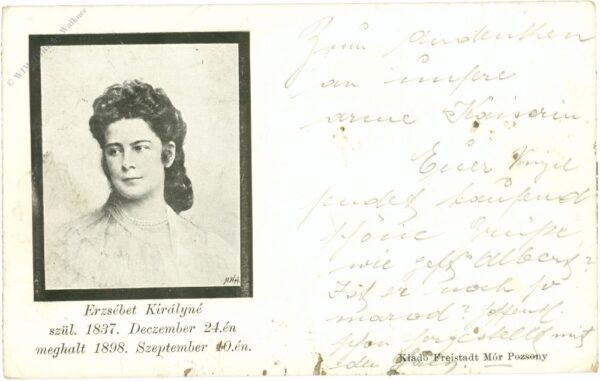 Erzsébet Királyné
szül. 1837. Deczember 24.én
meghalt 1898. Szeptember 10.én.
Zum Andenken
an unsere
arme Kaiserin.
Euer
sendet tausend
schöne Grüße
wie geht Albert?
Ist er noch so
marod?
mit
Kiadó Freistadt Mór Pozsony